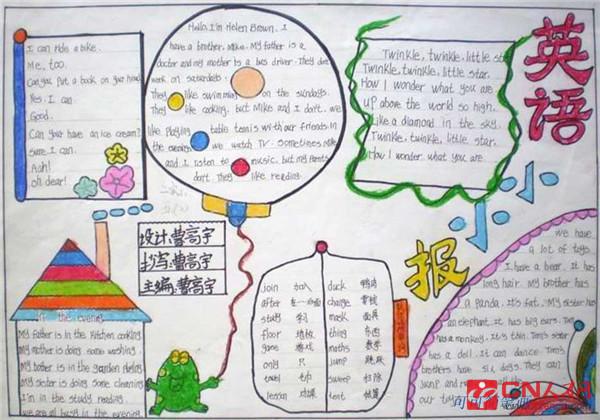 英语小小报
I can ride a bike.
Me, too.
Can you put a book on your head
Yes. I can.
Good.
Can your have an ice cream?
Sure. I can.
Aah!
Oh dear!
Hello, I'm Helen Brown. I
have a brother. Mike. My father is a
doctor and my mother is a bus driver. They don't
work on saturdays
They like swimming on the sundays.
They like cooking, but Mike and I don't. we
like playing table tenis with our friends. In
the evening we watch TV. Sometimes Mike
and I listen to music. but my parents
don't. They like reading.
Twinkle, twinkle, little star
Twinkle, twinkle, little star.
How I wonder what you are
up above the world so high.
Like a diamond in the sky.
Twinkle, twinkle, little star.
How I wonder what you are.
设计:曹高宇
抄写:曹高宇
主编:曹高宇
In the evening
My father is in the kitchen cooking
My mother is doing some washing
My brother is in the garden
My sister is doing some cleaning
I'm in the study reading
we are all busy in the evening.
join 加入 duck 鸭子
after 在…后面 change 零钱
study 学习 mask 面具
floor 地板 thing 东西
game 游戏 maths 数学
only 只 jump 跳跃
travel sweep 扫除
lesson 功课 tent 帐篷
we have
a lot of toys.
I have a bear. It has
long hair. My brother has
a panda. It's fat. My sister has
an elephant. It has big ears. Tom
has a monkey. It's thin. Tom's sister
has a doll. It can dance. Tom's
brothers have six dogs. They can
jump and
our toys
CN人人